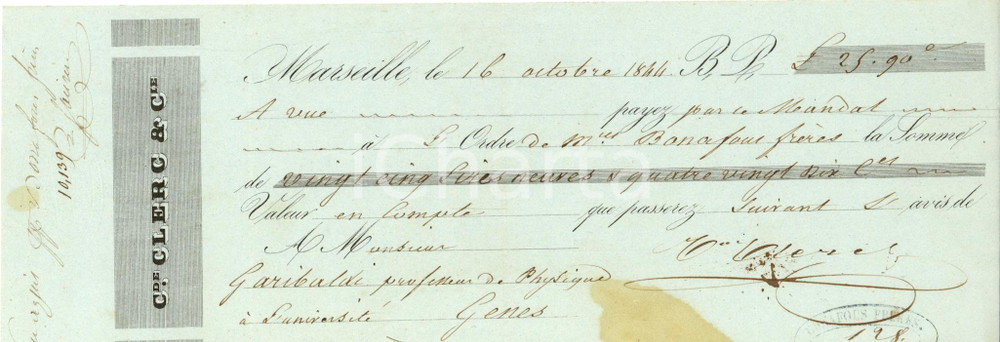 Marseille, le 16 octobre 1844 B. P. £ 25.90 c
A vue payez par ce Mandat
à L'Ordre de Mrs Bonafous frères la Somme
de vingt cinq Livres neuves & quatre vingt dix Ces
Valeur en Compte que passerez Suivant L' avis de
A Monsieur
Garibaldi professeur de Physique
à L'université Genes
CPDE. CLERC & CIE
10,139
BONAFOUS FRÈRES
128
iCharta